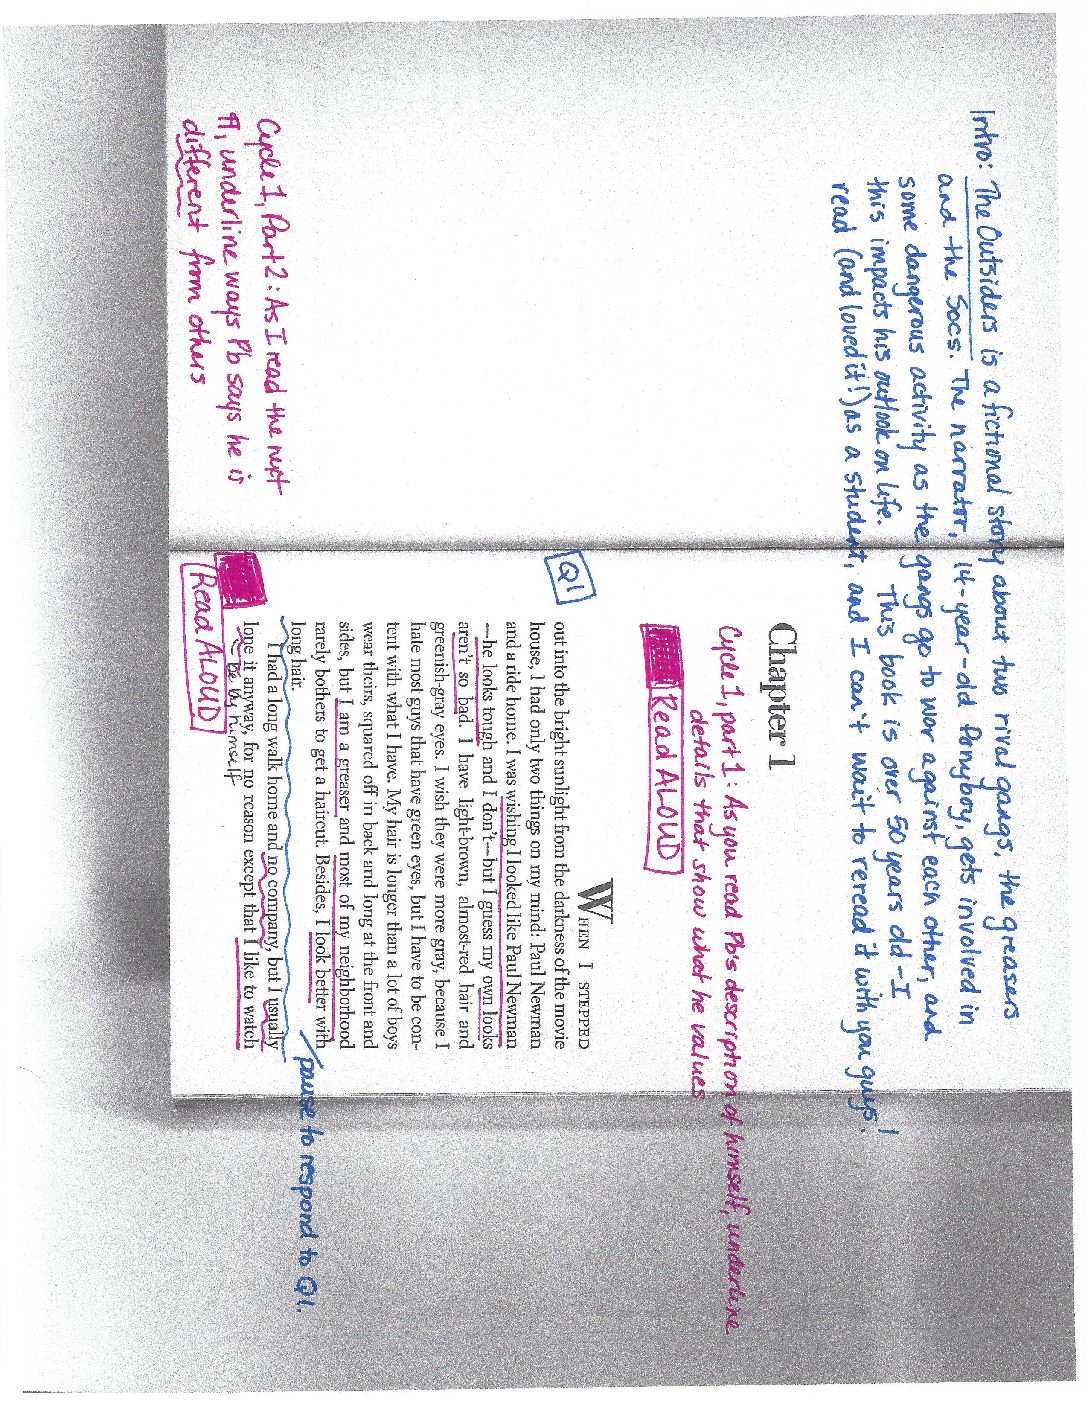 Intro: The Outsiders is a fictional story about two rival gangs, the greasers
and the Socs. The narrator, 14-year-old Ponyboy, gets involved in
some dangerous activity as the gangs go to war against each other, and
this impacts his outlook on life. This book is over 50 years old - I
read (and loved it!) as a student, and I can't wait to reread it with you guys!
Chapter 1
Cycle 1, part 1: As you read Pb's description of himself, underline
details that show what he values
Read ALOUD
Q1
WHEN I STEPPED
out into the bright sunlight from the darkness of the movie
house, I had only two things on my mind: Paul Newman
and a ride home. I was wishing I looked like Paul Newman
—he looks tough and I don't—but I guess my own looks
aren't so bad. I have light-brown, almost-red hair and
greenish-gray eyes. I wish they were more gray, because I
hate most guys that have green eyes, but I have to be con-
tent with what I have. My hair is longer than a lot of boys
wear theirs, squared off in back and long at the front and
sides, but I am a greaser and most of my neighborhood
rarely bothers to get a haircut. Besides, I look better with
long hair.
pause to respond to Q1.
Cycle 1, Part 2: As I read the next
¶, underline ways Pb says he is
different from others
I had a long walk home and no company, but I usually
lone it anyway, for no reason except that I like to watch
be by himself
Read ALOUD